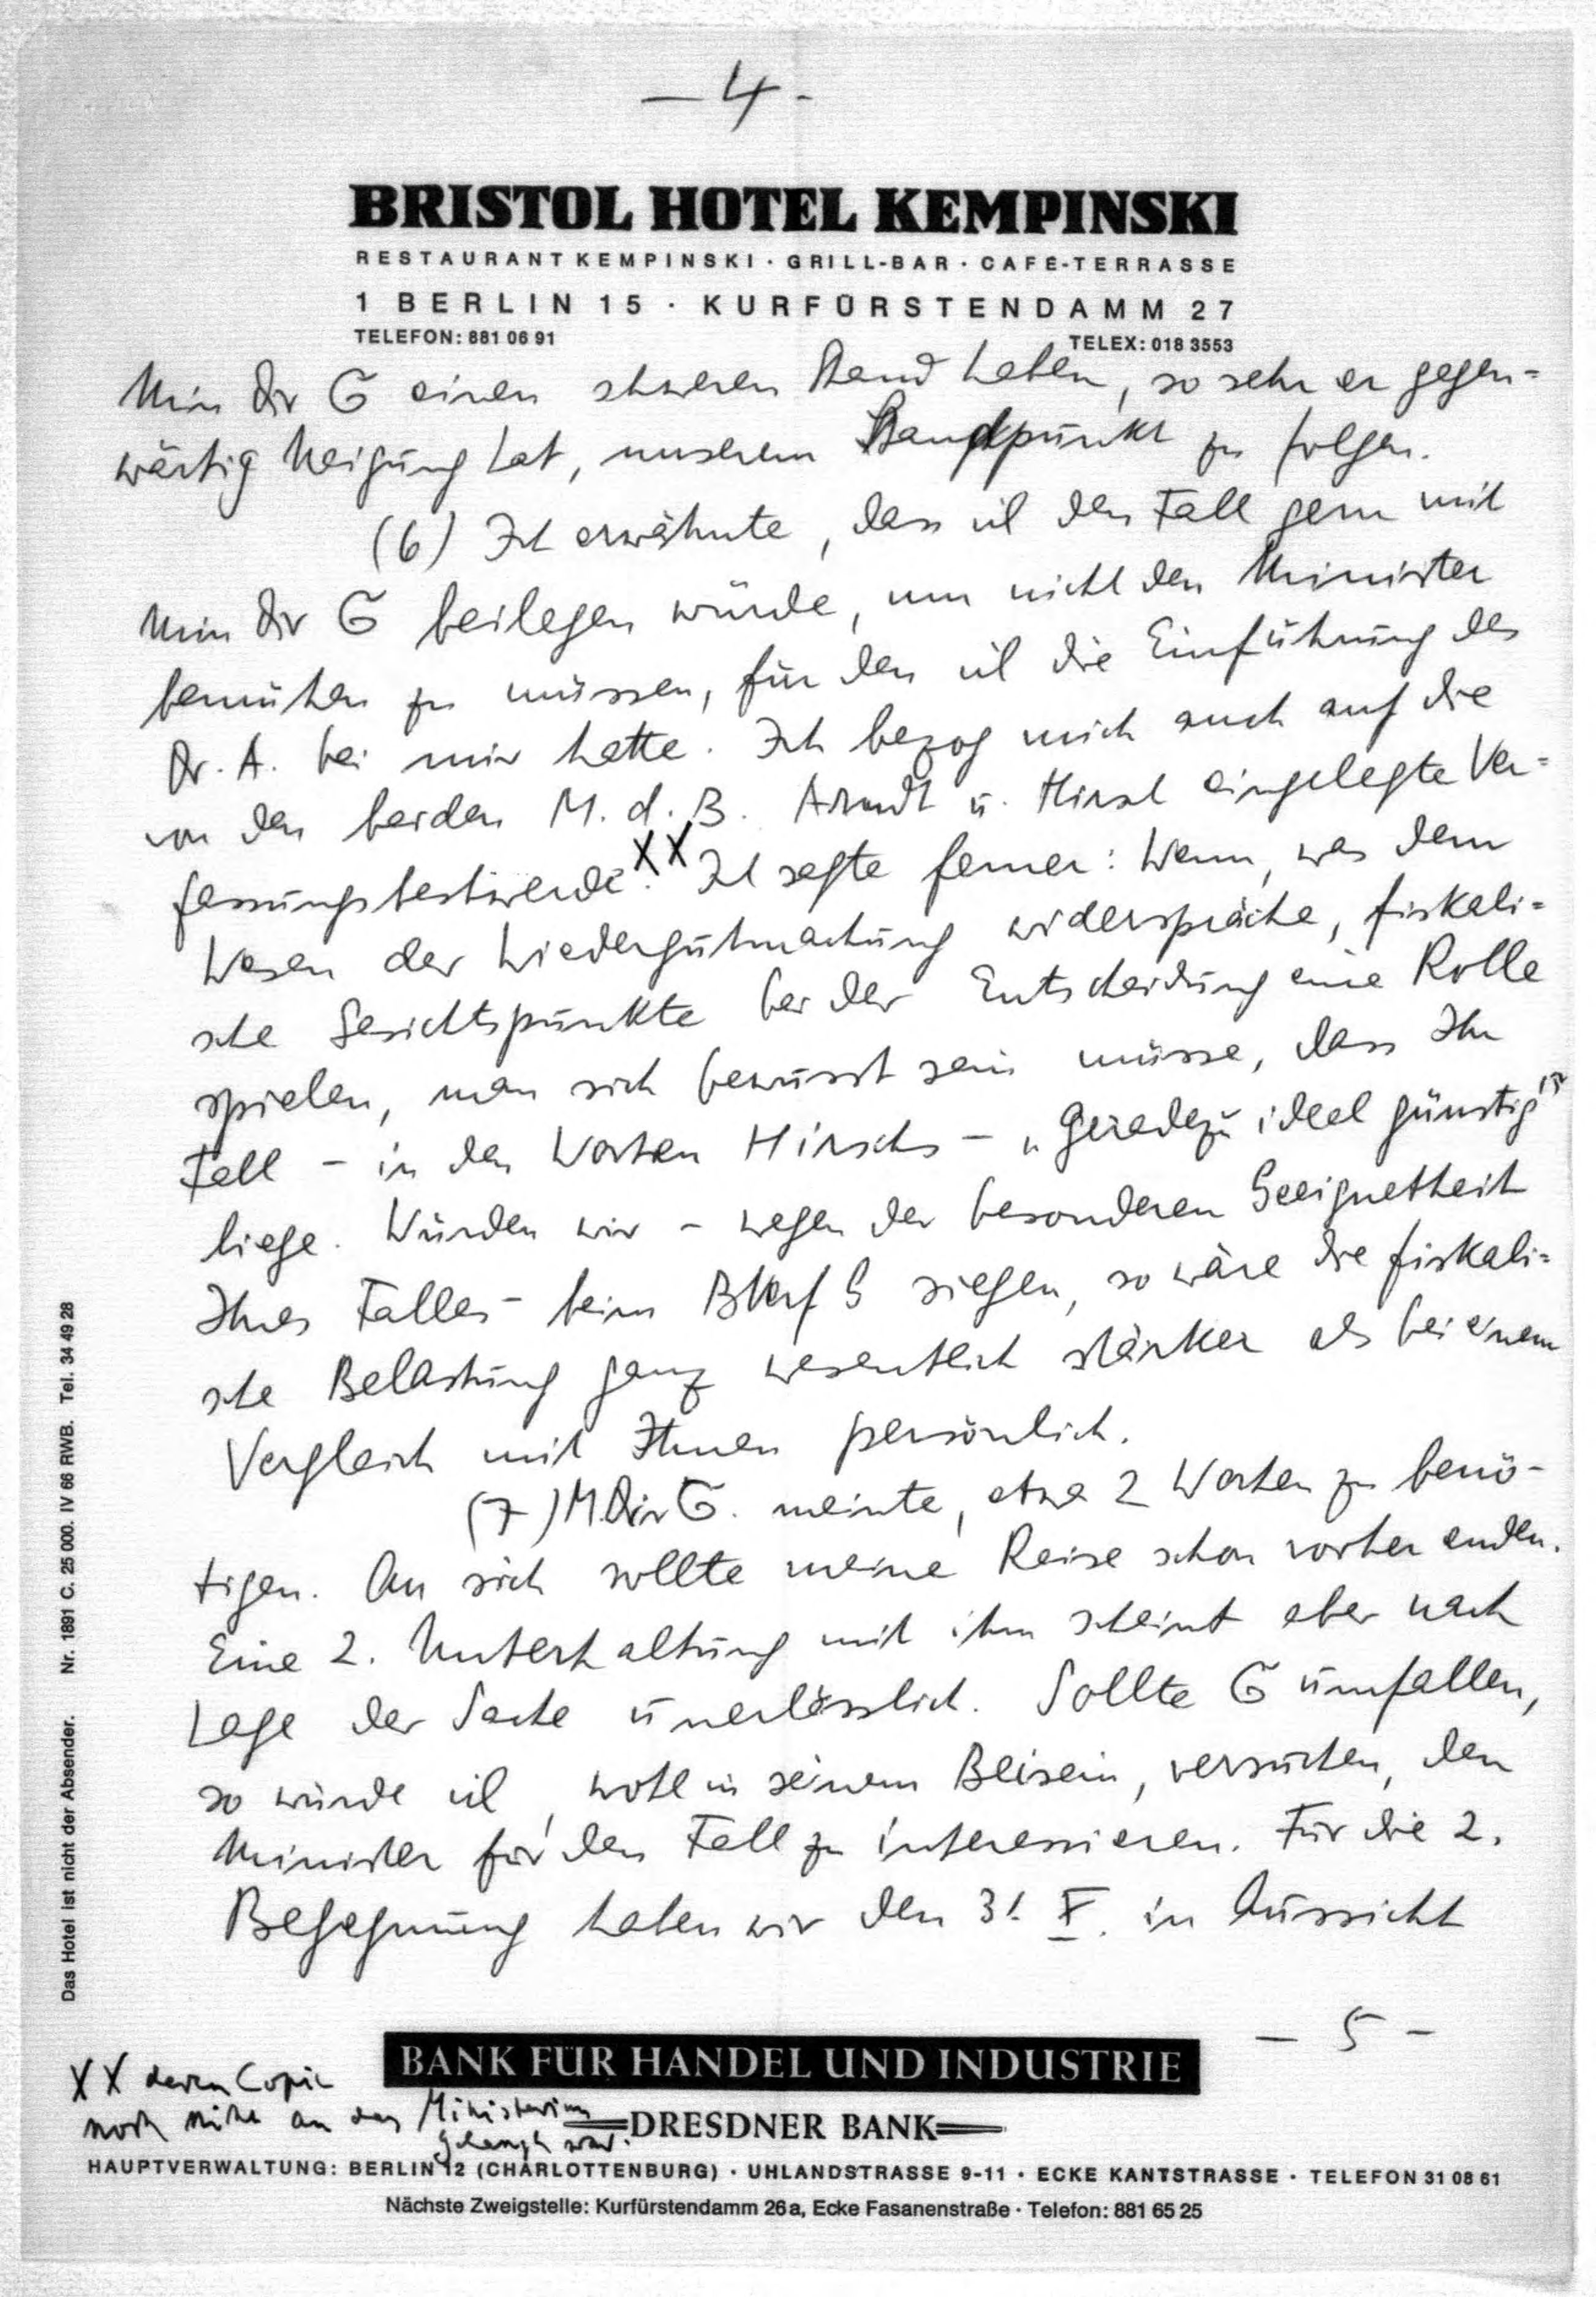 – 4 –
BRISTOL HOTEL KEMPINSKI
RESTAURANT KEMPINSKI · GRILL-BAR · CAFE-TERRASSE
1 BERLIN 15 · KURFÜRSTENDAMM 27
TELEFON: 881 06 91 TELEX: 018 3553
Min Dir G einen schweren Stand haben, so sehr er gegen=
wärtig Neigung hat, unserem Standpunkt zu folgen.
(6) Ich erwähnte, dass ich den Fall gern mit
Min Dir G beilegen würde, um nicht den Minister
bemühen zu müssen, für den ich die Einführung des
Dr. A. bei mir hatte. Ich bezog mich auch auf die
von den beiden M.d.B. Arndt u. Hirsch eingelegte Ver=
fassungsbeschwerde.XX Ich sagte ferner: Wenn, was dem
Wesen der Wiedergutmachung widerspräche, fiskali=
sche Gesichtspunkte bei der Entscheidung eine Rolle
spielen, man sich bewusst sein müsse, dass Ihr
Fall – in den Worten Hirschs – „geradezu ideal günstig"
liege. Würden wir – wegen der besonderen Geeignetheit
Ihres Falles – beim BVerfG siegen, so wäre die fiskali=
sche Belastung ganz wesentlich stärker als bei einem
Vergleich mit Ihnen persönlich.
(7) M.Dir G. meinte, etwa 2 Wochen zu benö-
tigen. An sich sollte meine Reise schon vorher enden.
Eine 2. Unterhaltung mit ihm scheint aber nach
Lage der Sache unerlässlich. Sollte G umfallen,
so würde ich, wohl in seinem Beisein, versuchen, den
Minister für den Fall zu interessieren. Für die 2.
Begegnung haben wir den 31. X. in Aussicht
– 5 –
XX deren Copie
noch nicht an das Ministerium
gelangt war.
BANK FÜR HANDEL UND INDUSTRIE
DRESDNER BANK
HAUPTVERWALTUNG: BERLIN 12 (CHARLOTTENBURG) · UHLANDSTRASSE 9-11 · ECKE KANTSTRASSE · TELEFON 31 08 61
Nächste Zweigstelle: Kurfürstendamm 26a, Ecke Fasanenstraße · Telefon: 881 65 25
Das Hotel ist nicht der Absender. Nr. 1891 C. 25 000. IV 66 RWB. Tel. 34 49 28